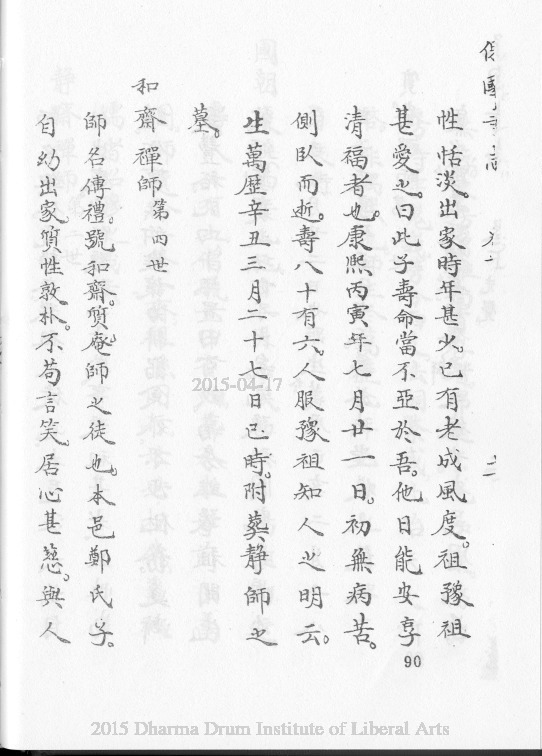 性恬淡。出家時年甚少。已有老成風度。祖豫祖
甚愛之。曰此子壽命當不亞於吾。他日能安享
清福者也。康熙丙寅年七月廿一日。初無病苦。
側臥而逝。壽八十有六。人服豫祖知人之明云。
生萬歷辛丑三月二十七日巳時。附葬静師之
墓。
和齋禪師第四世
師名傳禮。號和齋。質庵師之徒也。本邑鄭氏子。
自幼出家。質性敦朴。不苟言笑。居心甚慈。與人
90
2015-04-17
2015 Dharma Drum Institute of Liberal Arts